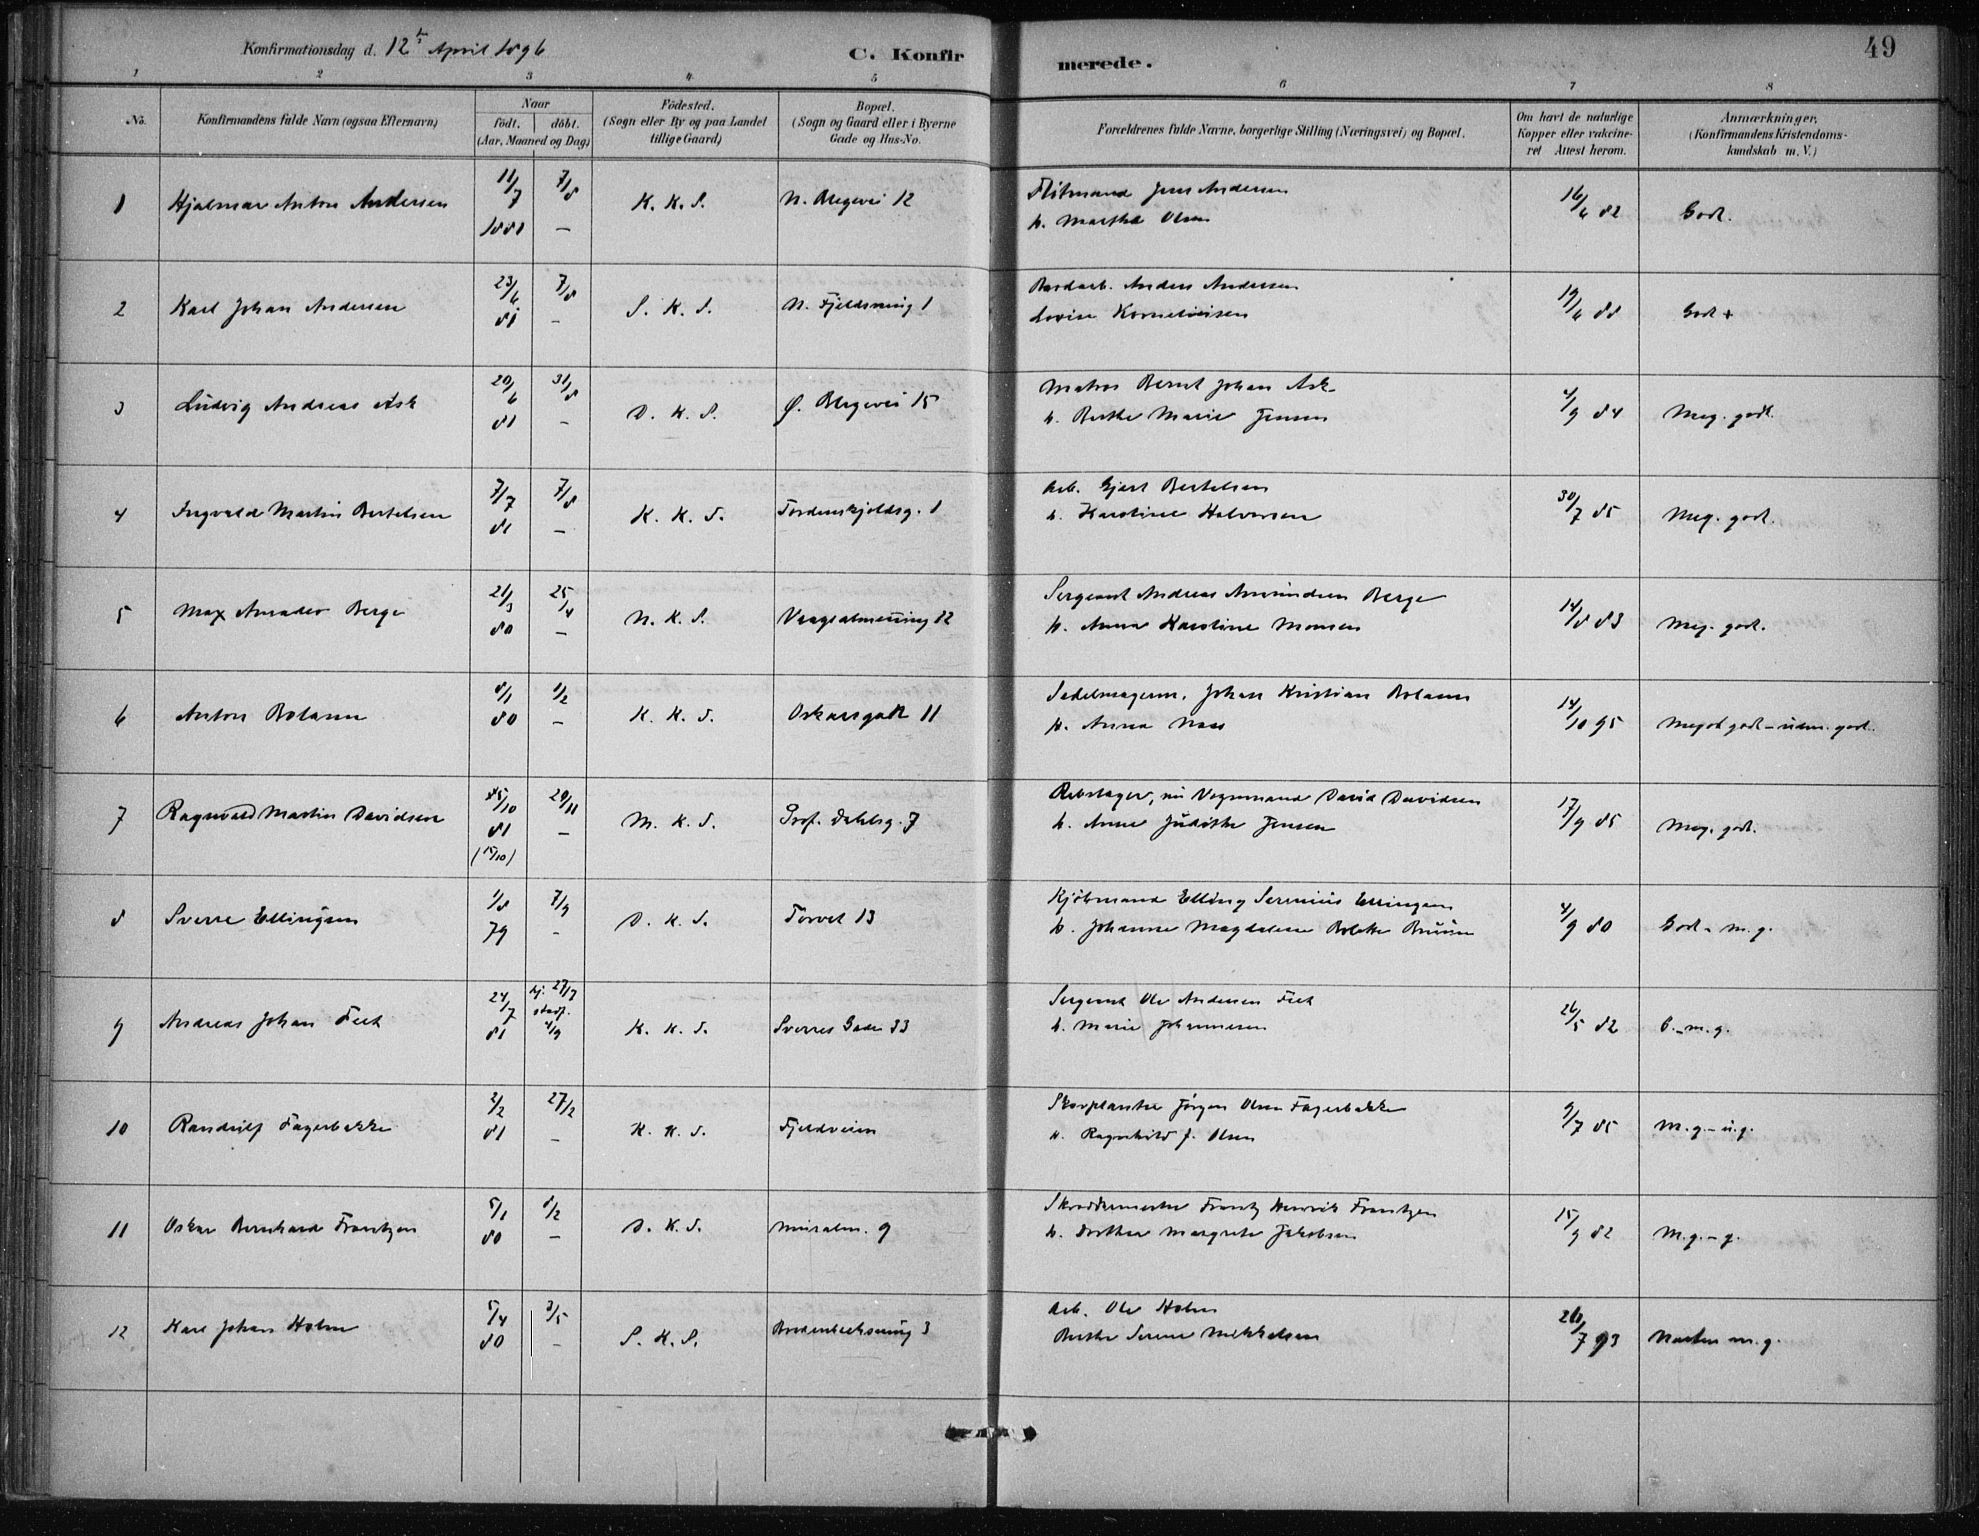 Konfirmationsdag d. 12te April 1896
C. Konfirmerede.
49
1 2 3 4 5 6 7 8
No.
Konfirmandens fulde Navn (ogsaa Efternavn)
Naar
födt. döbt.
(Aar, Maaned og Dag)
Födested.
(Sogn eller By og paa Landet
tillige Gaard)
Bopæl.
(Sogn og Gaard eller i Byerne
Gade og Hus-No.
Forældrenes fulde Navne, borgerlige Stilling (Næringsvei) og Bopæl.
Om havt de naturlige
Kopper eller vakcine-
ret Attest herom.
Anmærkninger,
(Konfirmandens Kristendoms-
kundskab m. V.)
1 Hjalmar Anton Andersen 11/7 1881 7/8 – K. K. S. N. Blegevei 12
Jens Andersen
h. Martha Olsen
16/4 82 Godt.
2 Karl Johan Andersen 23/6 81 7/8 – S. K. S. N. Fjeldsmug 1
Anders Andersen
Lovise Korneliusen
19/4 88 Godt +
3 Ludvig Andreas Ask 20/6 81 31/8 – D. K. S. Ø. Blegevei 15
Matros Bernt Johan Ask
h. Berthe Marie Jensen
4/9 84 Meg. godt.
4 Ingvald Martin Bertelsen 7/7 81 7/8 – K. K. S. Tordenskjoldsg. 1
Arb. Gjert Bertelsen
h. Karoline Halvorsen
30/7 85 Meg. godt.
5 Max Amadeo Berge 21/3 80 25/4 – N. K. S. Vaagsalmening 12
Sergeant Andreas Amundsen Berge
h. Anna Karoline Monsen
14/8 83 Meg. godt.
6 Anton Bolann 8/1 80 1/2 – K. K. S. Oskarsgade 11
Sadelmagerm. Johan Kristian Bolann
h. Anna Naas
14/10 95 Meget godt – udm. godt.
7 Ragnvald Martin Davidsen 15/10 81 (15/10) 20/11 – M. K. S. Prof. Dahlsg. 7
Rebslager, nu Vognmand David Davidsen
h. Anne Judithe Jensen
17/9 85 Meg. godt.
8 Sverre Ellingsen 1/8 79 7/9 – D. K. S. Torvet 13
Kjöbmand Elling Serenius Ellingsen
h. Johanne Magdalene Bolette Bruun
4/9 80 Godt – m. g.
9 Andreas Johan Feet 24/7 81 hj. 27/7 stadf. 4/9 K. K. S. Sverres Gade 33
Sergeant Ole Andersen Feet
h. Marie Johannesen
26/5 82 G. – m. g.
10 Randulf Fagerbakke 2/2 81 27/2 – K. K. S. Fjeldveien
Jørgen Olsen Fagerbakke
h. Ragnhild J. Olsen
9/7 85 M. g. – u. g.
11 Oskar Bernhard Frantzen 5/1 80 8/2 – D. K. S. Muralm. 9
Skreddermester Frantz Henrik Frantzen
h. Dorthea Margrete Jakobsen
15/9 82 M. g. – g.
12 Karl Johan Holm 5/4 80 3/5 – S. K. S. Bredenbecksmug 3
Arb. Ole Holm
Berthe Serine Mikkelsen
26/7 93 Næsten m. g.